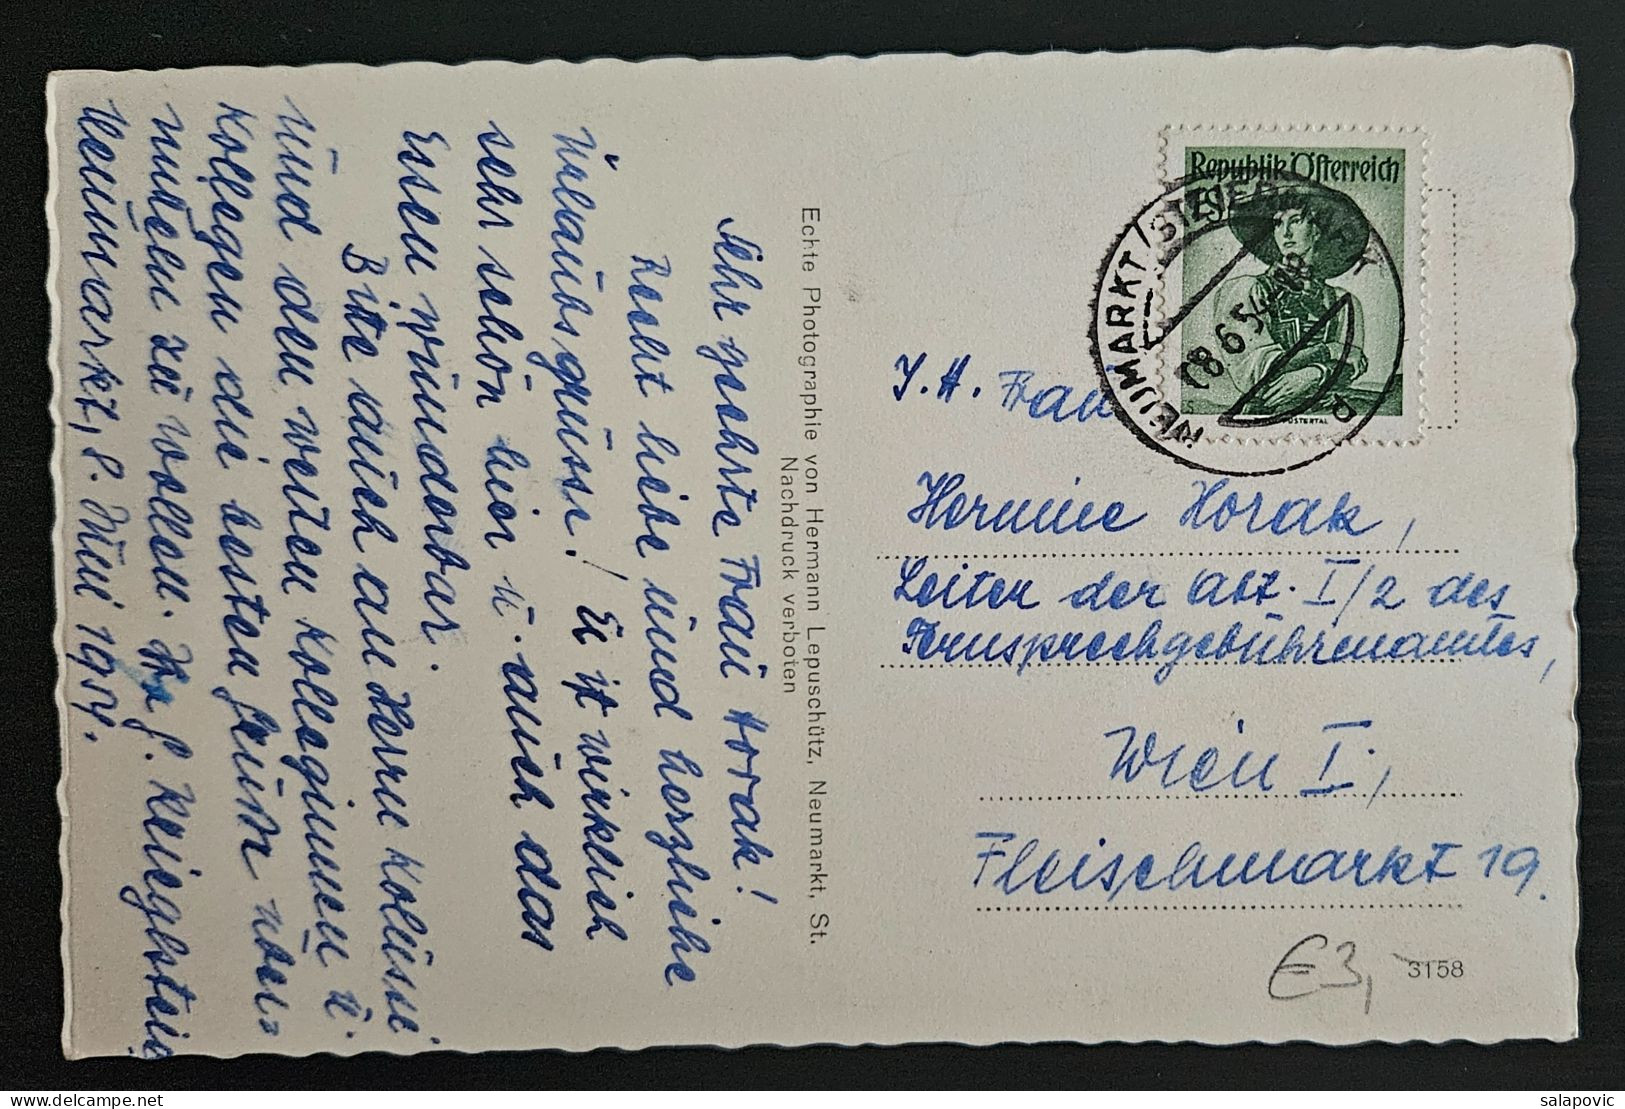 Sehr geehrte Frau Horak!
Recht liebe und herzliche
Urlaubsgrüsse! Es ist wirklich
sehr schön hier u. auch das
Essen wunderbar.
Bitte auch an Herrn
und den weiten Kolleginnen u.
Kollegen die besten über=
mitteln zu wollen. Ihr
Neumarkt, 8. Juni 1954.
Echte Photographie von Hermann Lepuschütz, Neumarkt, St.
Nachdruck verboten
Republik Österreich
1S
PUSTERTAL
NEUMARKT/STEIERMARK
08.6.54
I. H. Frau
Hermine Horak,
Leiter der Abt. I/2 des
Fernsprechgebührenamtes,
Wien I.,
Fleischmarkt 19.
€3,-
3158
salapovic